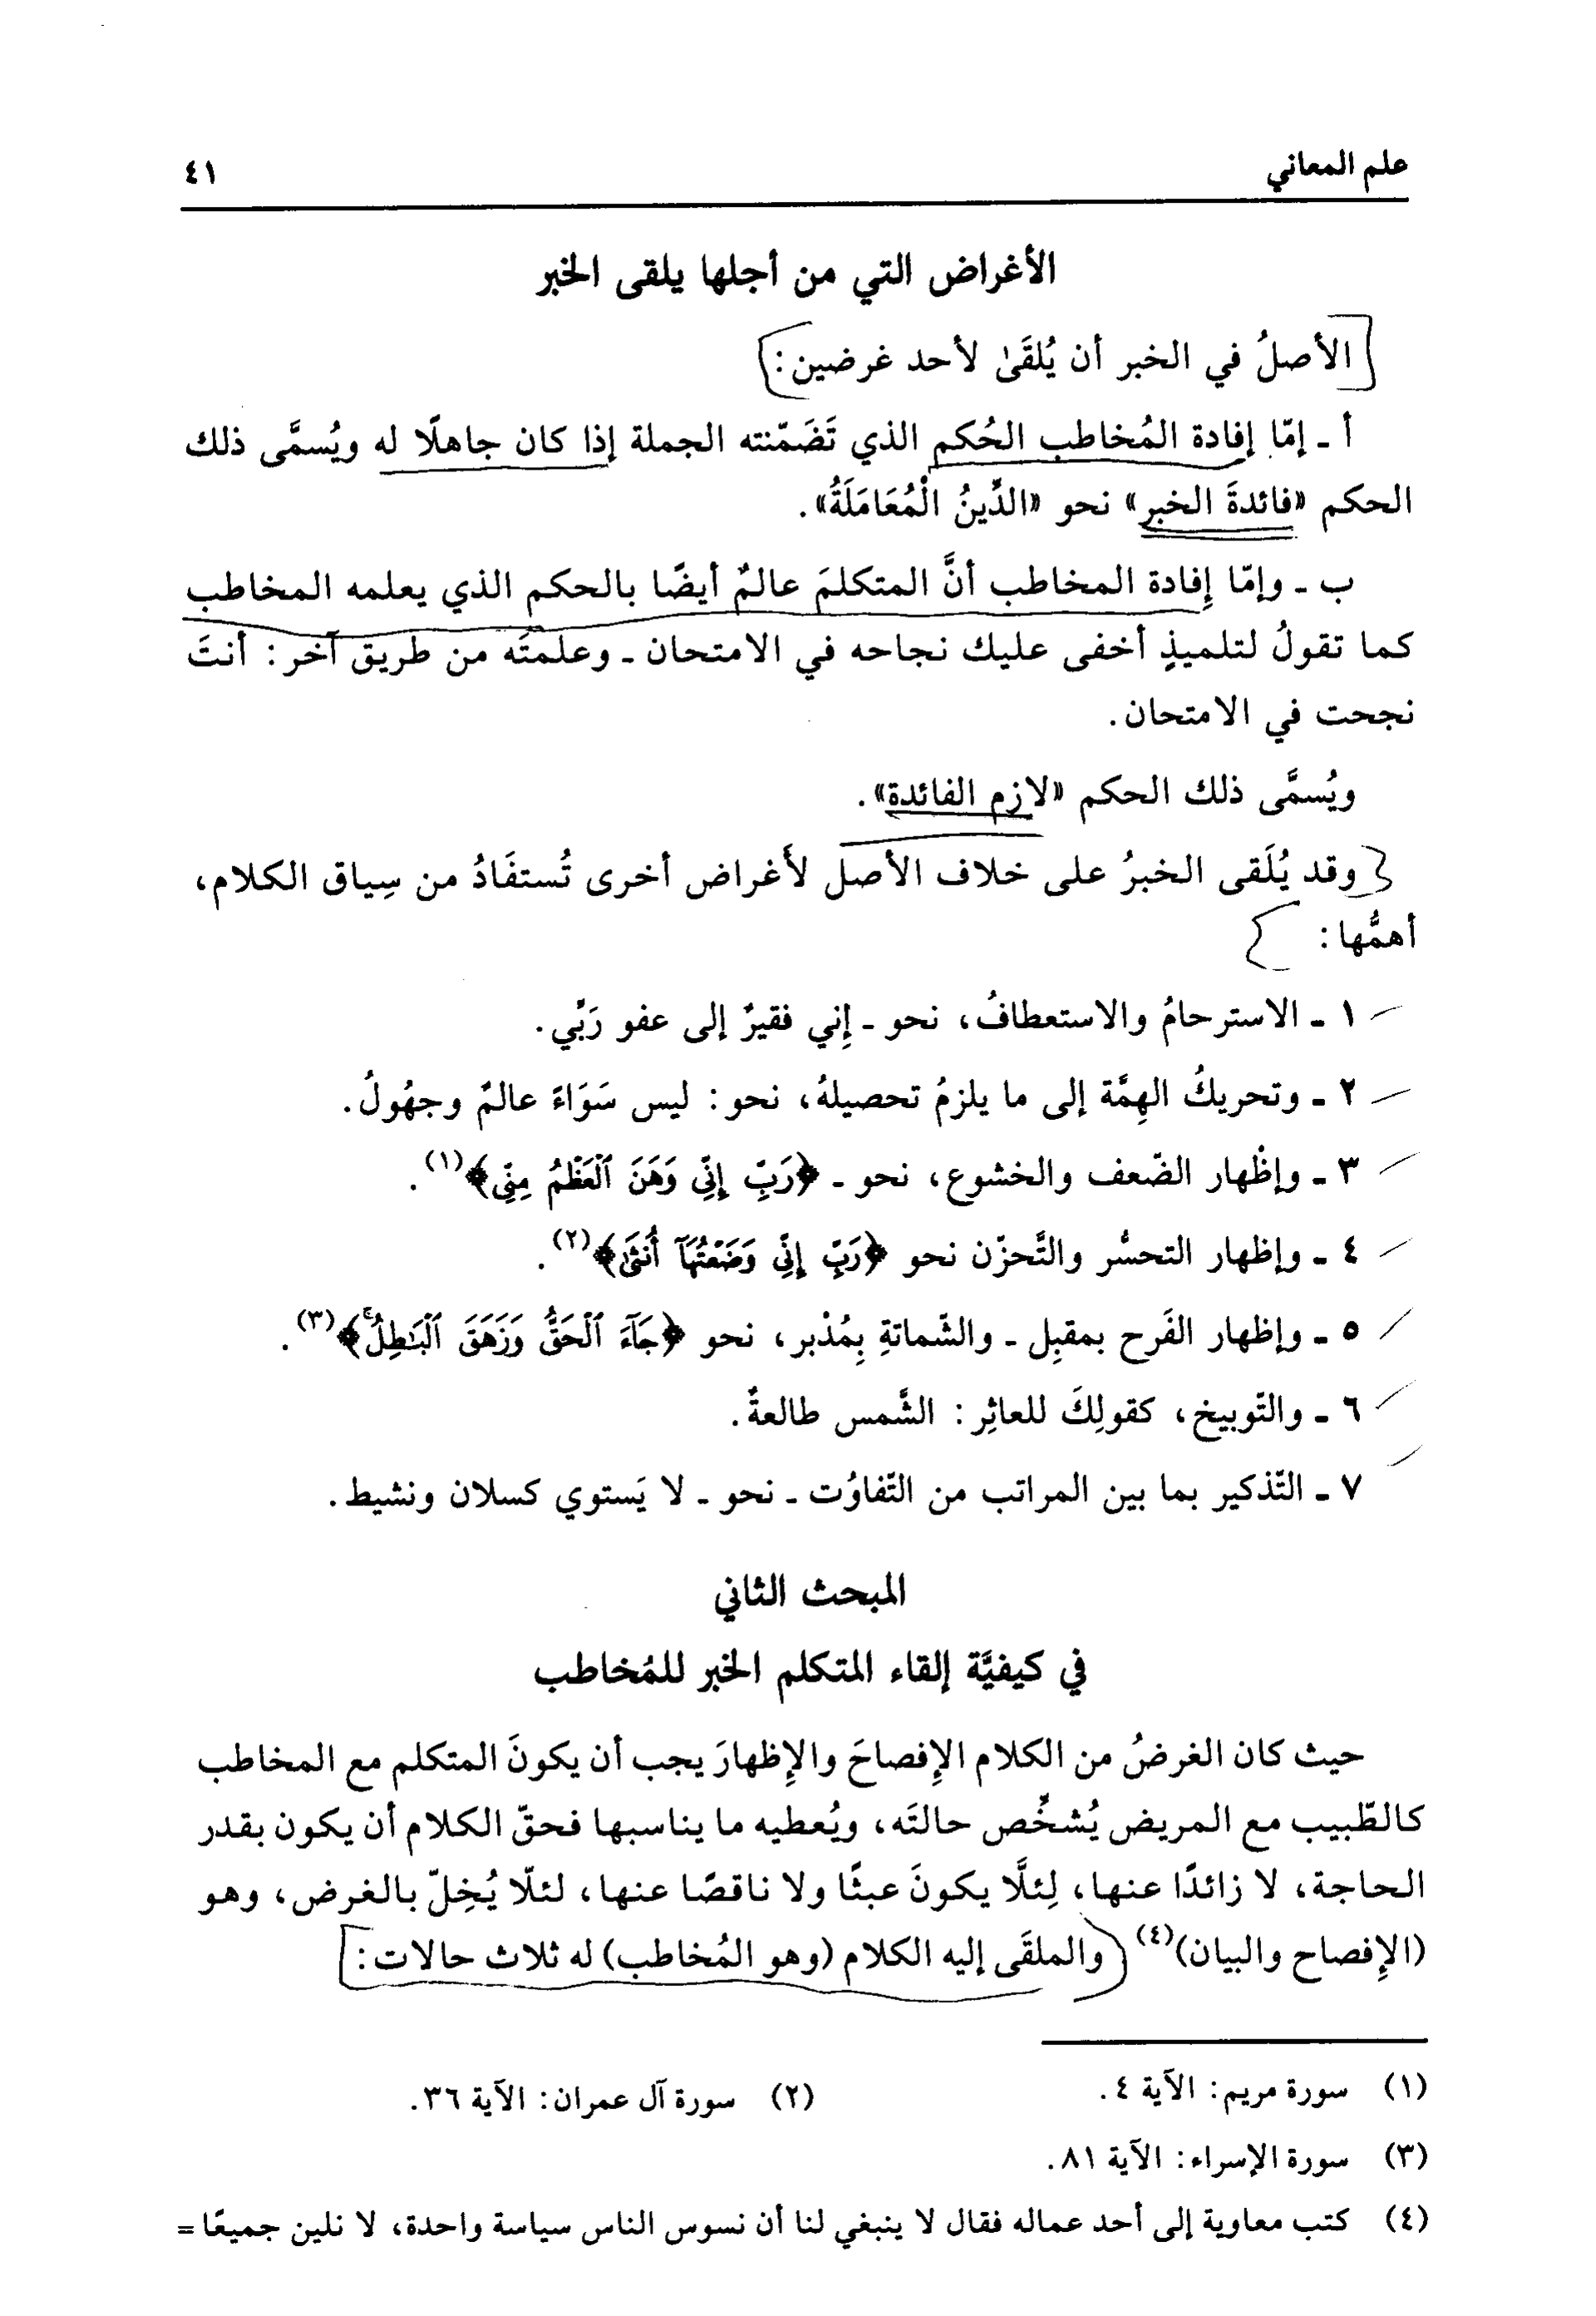 علم المعاني
٤١
الأغراض التي من أجلها يلقى الخبر
الأصلُ في الخبر أن يُلقَىٰ لأحد غرضين:
أ ـ إمّا إفادة المُخاطب الحُكم الذي تَضَمّنته الجملة إذا كان جاهلًا له ويُسمَّى ذلك
الحكم «فائدةَ الخبر» نحو «الدِّينُ الْمُعَامَلَةُ».
ب ـ وإمّا إِفادة المخاطب أنَّ المتكلمَ عالمٌ أيضًا بالحكم الذي يعلمه المخاطب
كما تقولُ لتلميذٍ أخفى عليك نجاحه في الامتحان ـ وعلمتَه من طريق آخر: أنتَ
نجحت في الامتحان.
ويُسمَّى ذلك الحكم «لازم الفائدة».
وقد يُلَقى الخبرُ على خلاف الأصل لأَغراض أخرى تُستفَادُ من سِياق الكلام،
أهمُّها:
١ ـ الاسترحامُ والاستعطافُ، نحو ـ إِني فقيرٌ إلى عفو رَبِّي.
٢ ـ وتحريكُ الهِمَّة إلى ما يلزمُ تحصيلهُ، نحو: ليس سَوَاءً عالمٌ وجهُولُ.
٣ ـ وإظْهار الضّعف والخشوع، نحو ـ ﴿رَبِّ إِنِّي وَهَنَ ٱلْعَظْمُ مِنِّي﴾(١).
٤ ـ وإظهار التحسُّر والتَّحزّن نحو ﴿رَبِّ إِنِّي وَضَعْتُهَآ أُنثَىٰ﴾(٢).
٥ ـ وإظهار الفَرح بمقبِل ـ والشّماتةِ بِمُدْبر، نحو ﴿جَآءَ ٱلْحَقُّ وَزَهَقَ ٱلْبَٰطِلُۚ﴾(٣).
٦ ـ والتّوبيخ، كقولِكَ للعاثِر: الشَّمس طالعةٌ.
٧ ـ التّذكير بما بين المراتب من التّفاوُت ـ نحو ـ لا يَستوي كسلان ونشيط.
المبحث الثاني
في كيفيَّة إلقاء المتكلم الخبر للمُخاطب
حيث كان الغرضُ من الكلام الإِفصاحَ والإِظهارَ يجب أن يكونَ المتكلم مع المخاطب
كالطّبيب مع المريض يُشخِّص حالتَه، ويُعطيه ما يناسبها فحقّ الكلام أن يكون بقدر
الحاجة، لا زائدًا عنها، لِئلَّا يكونَ عبثًا ولا ناقصًا عنها، لئلّا يُخِلّ بالغرض، وهو
(الإِفصاح والبيان)(٤) والملقَى إليه الكلام (وهو المُخاطب) له ثلاث حالات:
(١) سورة مريم: الآية ٤.
(٢) سورة آل عمران: الآية ٣٦.
(٣) سورة الإسراء: الآية ٨١.
(٤) كتب معاوية إلى أحد عماله فقال لا ينبغي لنا أن نسوس الناس سياسة واحدة، لا نلين جميعًا =